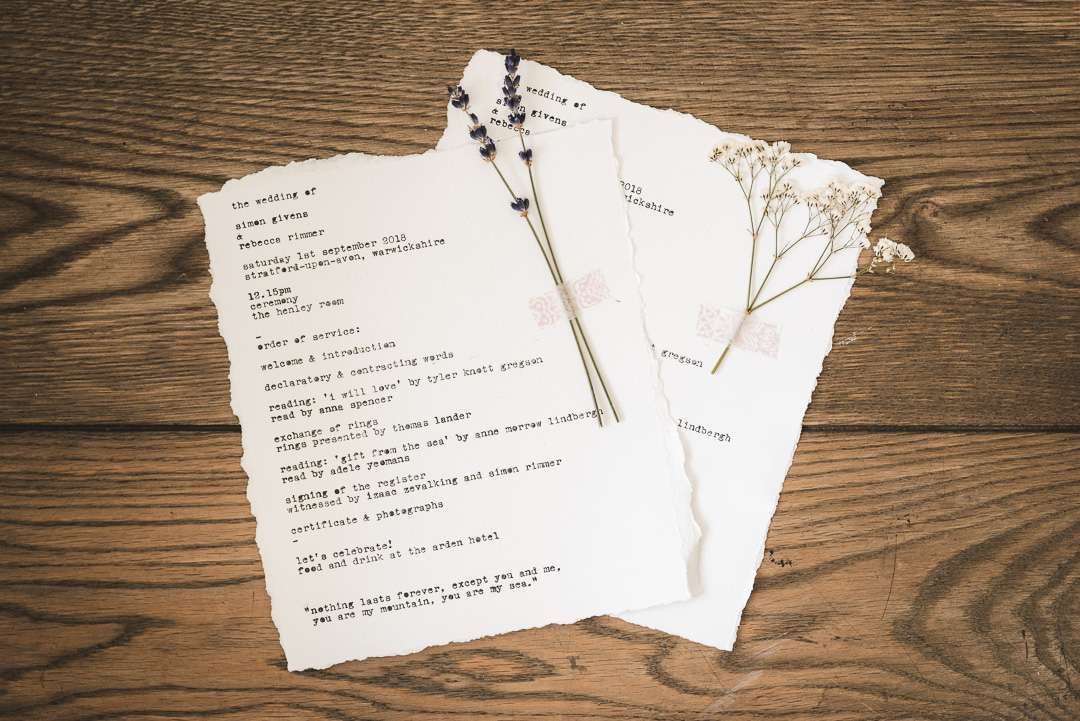 the wedding of
simon givens
&
rebecca rimmer
saturday 1st september 2018
stratford-upon-avon, warwickshire
12.15pm
ceremony
the henley room
–
order of service:
welcome & introduction
declaratory & contracting words
reading: 'i will love' by tyler knott gregson
read by anna spencer
exchange of rings
rings presented by thomas lander
reading: 'gift from the sea' by anne morrow lindbergh
read by adele yeomans
signing of the register
witnessed by izaac zevalking and simon rimmer
certificate & photographs
–
let's celebrate!
food and drink at the arden hotel
"nothing lasts forever, except you and me,
you are my mountain, you are my sea."
wedding of
simon givens
&
rebecca
2018
wickshire
gregson
lindbergh